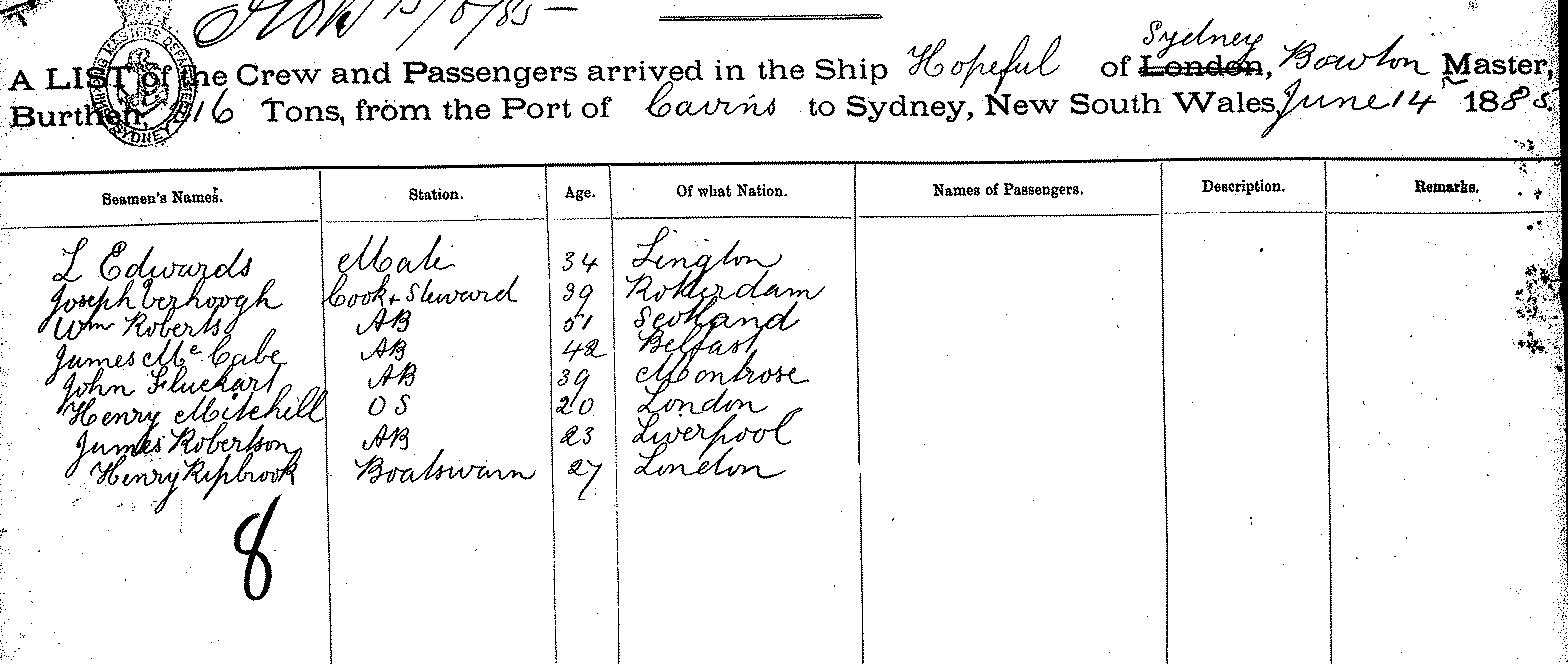 A LIST of the Crew and Passengers arrived in the Ship Hopeful of Sydney London, Bowton Master,
Burthen, Tons, from the Port of to Sydney, New South Wales, June 14 1885
Seamen's Names. Station. Age. Of what Nation. Names of Passengers. Description. Remarks.
L Edwards Mate 34
Joseph Verhoogh Cook + Steward 39 Rotterdam
Wm Roberts AB 51 Scotland
James Mc Cabe AB 42 Belfast
John AB 39 Montrose
Henry Mitchill OS 20 London
James Robertson AB 23 Liverpool
Henry Ripbrook Boatswain 27 London
8